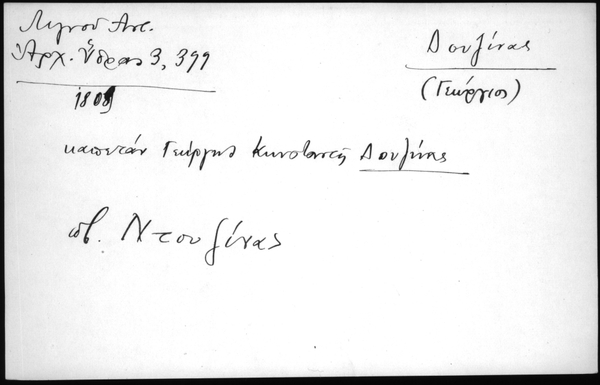 Λιγνού Αντ.
Ἀρχ. Ὕδρας 3, 399
1808
Δουζίνας
(Γεώργιος)
καπετάν Γεώργη Κωνσταντή Δουζίνας
πβ. Ντουζίνας